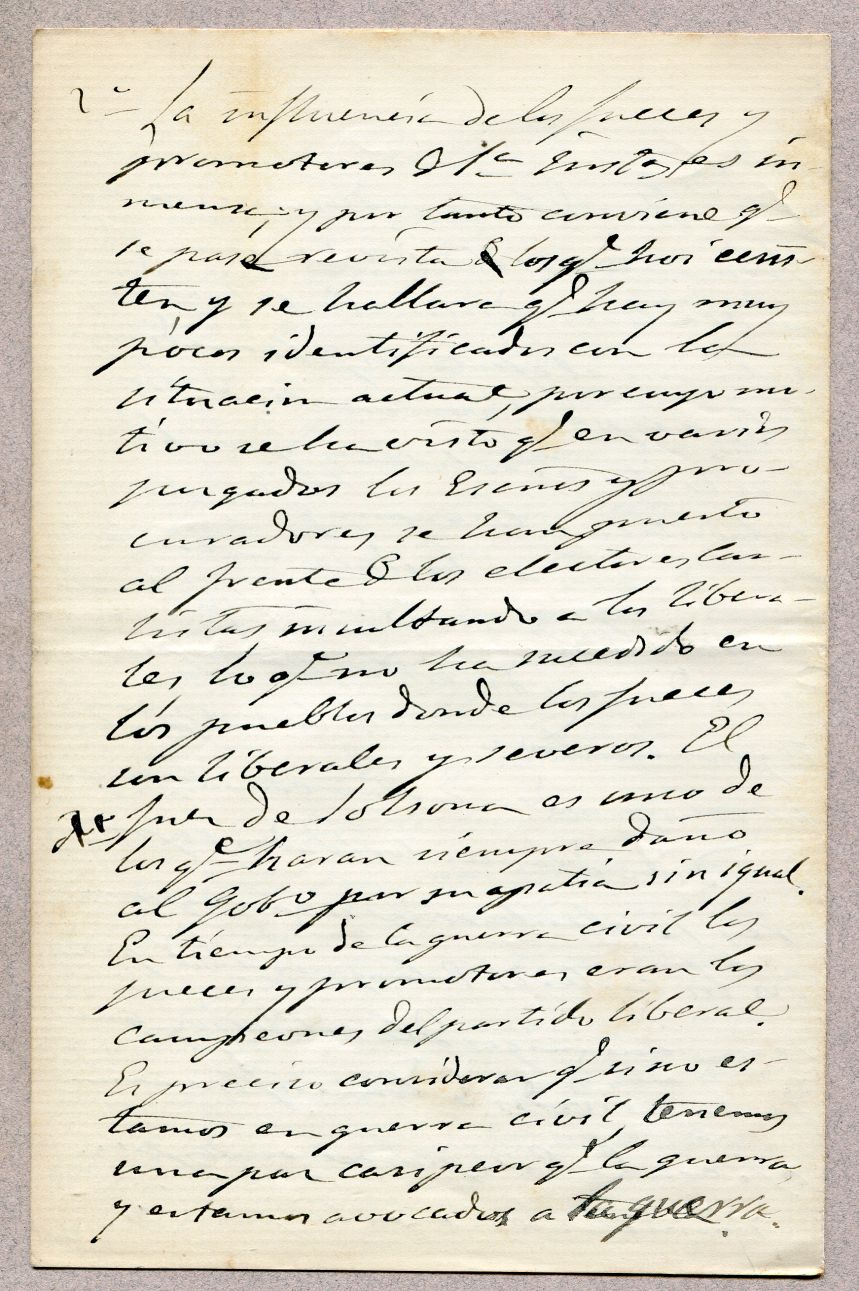 2º La influencia de los jueces y
promotores d 1ª Instª, es in-
mensa, y por tanto conviene qᵉ
se pase revista a los qᵉ hoi ecsis-
ten y se hallara qᵉ hay muy
pocos identificados con la
situacion actual, por cuyo mo-
tivo se ha visto qᵉ en varios
juzgados los Escnos y pro-
curadores se han puesto
al frente d los electores car-
listas insultando a los libera-
les lo qᵉ no ha sucedido en
los pueblos donde los jueces
son liberales y severos. El
juez de Solsona es uno de
los qᵉ haran siempre daño
al Gobº por su apatia sin igual.
En tiempo de la guerra civil los
jueces y promotores eran los
campeones del partido liberal.
Es preciso considerar qᵉ si no es-
tamos en guerra civil, tenemos
una paz casi peor qᵉ la guerra,
y estamos avocados a la guerra.